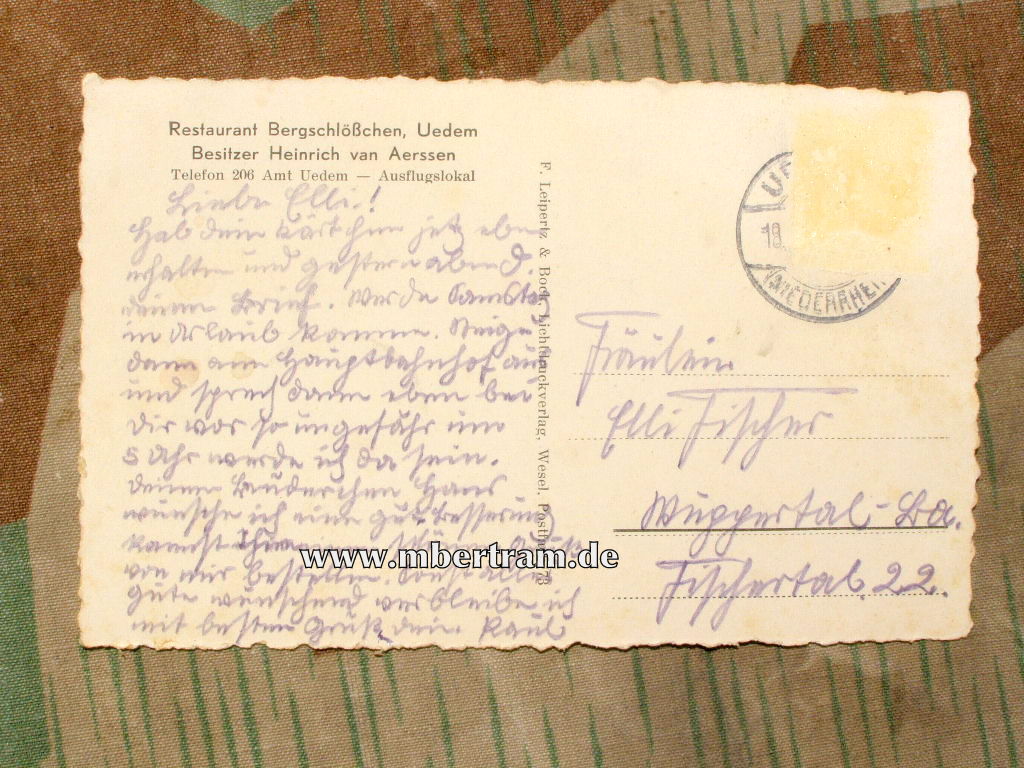 Restaurant Bergschlößchen, Uedem
Besitzer Heinrich van Aerssen
Telefon 206 Amt Uedem — Ausflugslokal
Liebe Elli!
Hab dein Kärtchen jetz eben
erhalten und gestern abend
deinen Brief. Werde Samstag
in Urlaub kommen. Steige
dann am Hauptbahnhof aus
und sprech dann eben bei
Dir vor so ungefähr um
5 Uhr werde ich da sein.
deinem Bruderchen Hans
wünsche ich eine gute Besserung
kannst Ihm
von mir bestellen. Sonst alles
gute wünschend verbleibe ich
mit besten Gruß dein Paul
F. Leipertz & Bock, Lichtdruckverlag, Wesel, Postfach 73
18.
NIEDERRHEIN
Fräulein
Elli Fischer
Wuppertal-Ba.
Fischertal 22.
www.mbertram.de